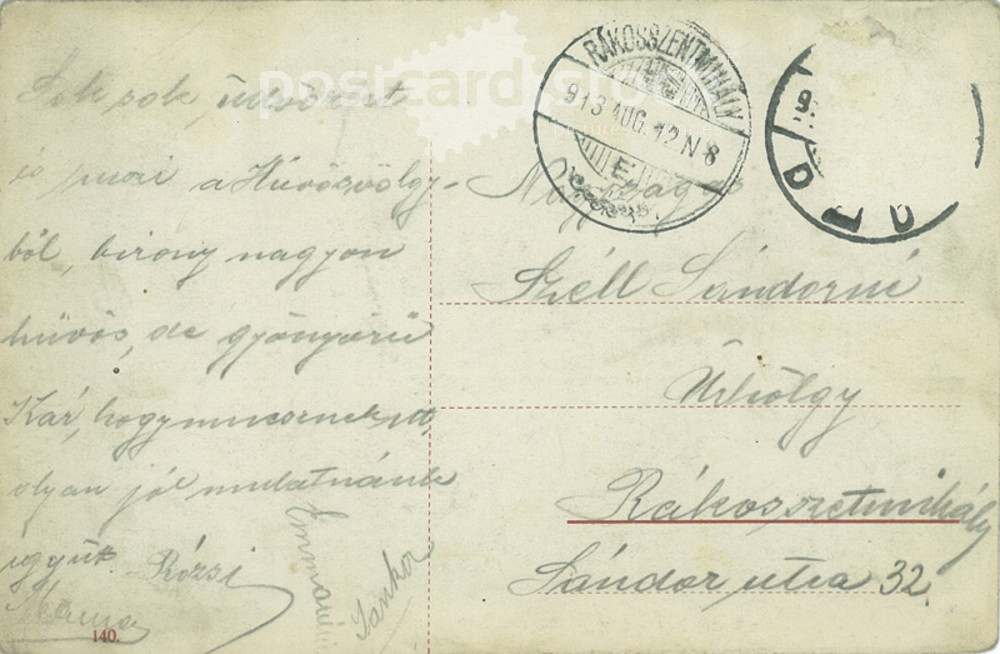 Sok sok üdvözlet
és puszi a Hűvösvölgy-
ből, bizony nagyon
hűvös, de gyönyörű
Kár, hogy nincsenek itt,
olyan jól mulatnánk
együtt. Rózsi
Mama
Sanka
140.
RÁKOSSZENTMIHÁLY
913 AUG. 12 N 8
E
Nagysága
Széll Sándorné
Úrhölgy
Rákosszetmihály
Sándor utca 32.